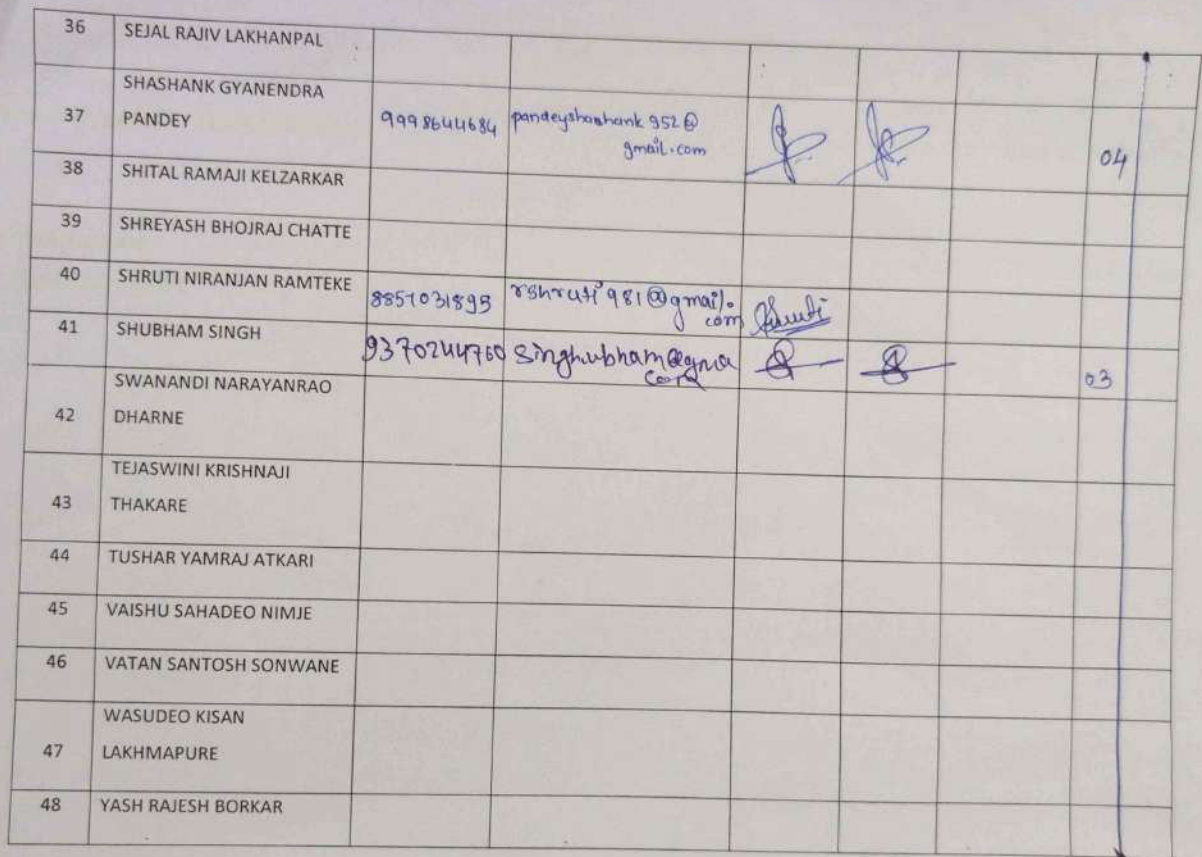 36 SEJAL RAJIV LAKHANPAL
SHASHANK GYANENDRA
37 PANDEY 9998644684 pandeyshashank952@
gmail.com
04
38 SHITAL RAMAJI KELZARKAR
39 SHREYASH BHOJRAJ CHATTE
40 SHRUTI NIRANJAN RAMTEKE 8857031895 rshruti981@gmail.
com Shruti
41 SHUBHAM SINGH 9370244760 singhubham@gma
com 03
SWANANDI NARAYANRAO
42 DHARNE
TEJASWINI KRISHNAJI
43 THAKARE
44 TUSHAR YAMRAJ ATKARI
45 VAISHU SAHADEO NIMJE
46 VATAN SANTOSH SONWANE
WASUDEO KISAN
47 LAKHMAPURE
48 YASH RAJESH BORKAR